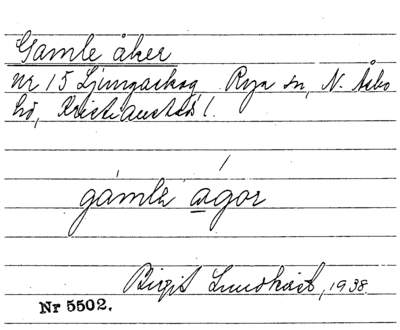 Gamle åker
nr 15 Ljungaskog, Rya sn, N. Åsbo
hd, Kristianstads l.
gámlə ágor
Birgit Lundkvist, 1938.
Nr 5502.